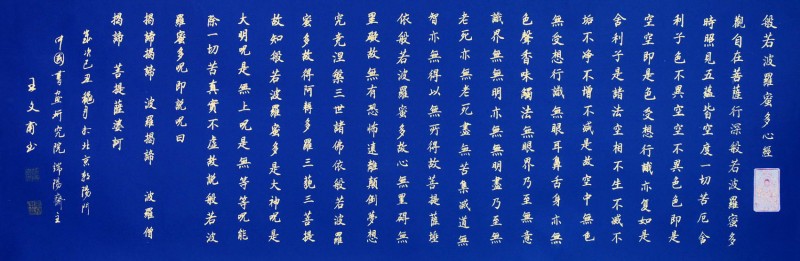 般若波羅蜜多心經
觀自在菩薩行深般若波羅蜜多
時照見五蘊皆空度一切苦厄舍
利子色不異空空不異色色即是
空空即是色受想行識亦復如是
舍利子是諸法空相不生不滅不
垢不淨不增不減是故空中無色
無受想行識無眼耳鼻舌身亦無
色聲香味觸法無眼界乃至無意
識界無無明亦無無明盡乃至無
老死亦無老死盡無苦集滅道無
智亦無得以無所得故菩提薩埵
依般若波羅蜜多故心無罣礙無
罣礙故無有恐怖遠離顛倒夢想
究竟涅槃三世諸佛依般若波羅
蜜多故得阿耨多羅三藐三菩提
故知般若波羅蜜多是大神呪是
大明呪是無上呪是無等等呪能
除一切苦真實不虛故說般若波
羅蜜多呪即說呪曰
揭諦揭諦 波羅揭諦 波羅僧
揭諦 菩提薩婆訶
歲次己丑 月於北京朝陽門
中國書畫研究院綿陽齋主
王文甫書